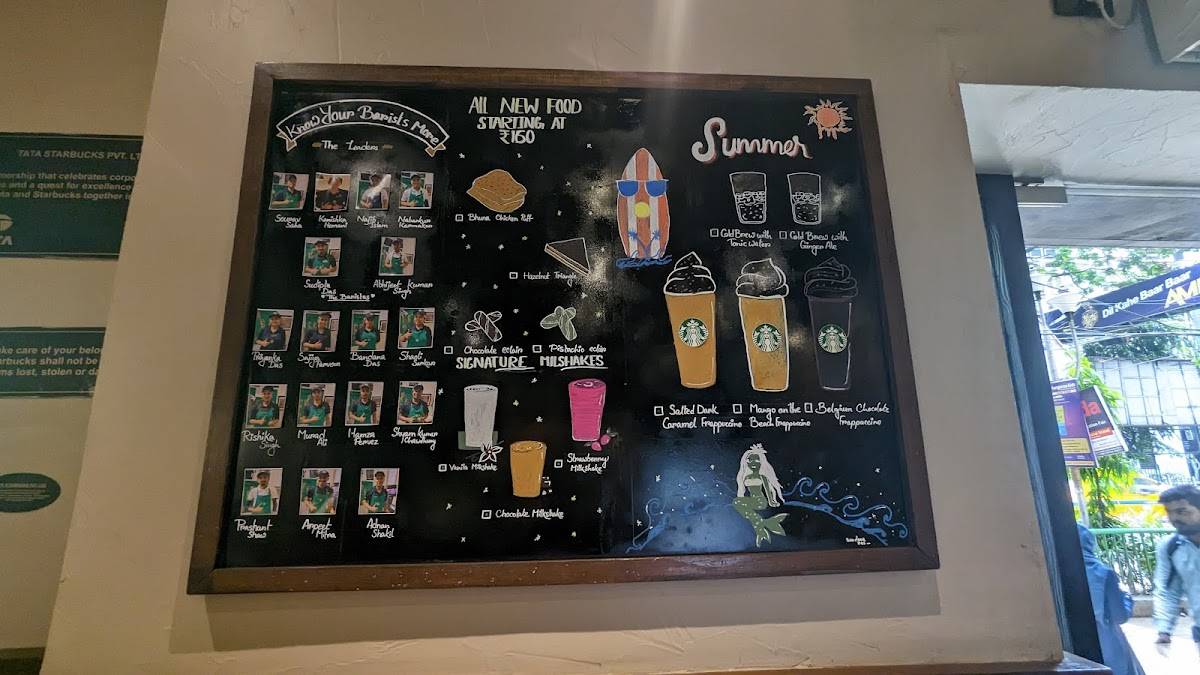 TATA STARBUCKS PVT. LT
that celebrates corpo
and a quest for excellence
and Starbucks together
ake care of your belo
rbucks shall not be
ms lost, stolen or da
Know Your Barists More
The Leaders
Sourav
Saha
Kanishka
Nafis
Islam
Sudipta
Das
Abhijeet Kumar
Singh
The Baristas
Priyanka
Das
Bandana
Das
Rishika
Singh
Murad
Ali
Hamza
Pervez
Shyam Kumar
Chowdhury
Prashant
Shaw
Arpeet
Mitra
Adnan
Shakil
ALL NEW FOOD
STARTING AT
₹160
Bhuna Chicken Puff
Hazelnut Triangle
Chocolate eclair
Pistachio eclair
SIGNATURE MILSHAKES
Vanilla Milkshake
Strawberry
Milkshake
Chocolate Milkshake
Summer
Cold Brew with
Tonic water
Cold Brew with
Ginger Ale
Salted Dark
Caramel Frappuccino
Mango on the
Beach Frappuccino
Belgium Chocolate
Frappuccino
Dil Kahe Baar Baar